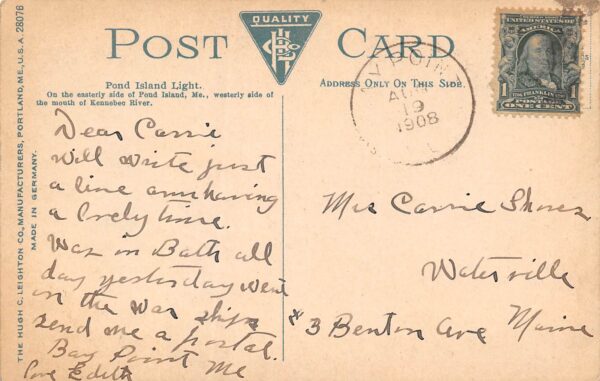 QUALITY
POST CARD
Pond Island Light.
On the easterly side of Pond Island, Me., westerly side of
the mouth of Kennebec River.
ADDRESS ONLY ON THIS SIDE.
THE HUGH C. LEIGHTON CO., MANUFACTURERS, PORTLAND, ME., U.S.A. 28076
MADE IN GERMANY.
Dear Carrie
Will write just
a line am having
a lovely time.
Was in Bath all
day yesterday went
on the war ships
send me a postal.
Bay Point Me
Love Edith
Y POIN
AUG
19
1908
UNITED STATES OF AMERICA
FRANKLIN
1 POSTAGE 1
ONE CENT
Mrs Carrie Shores
Waterville
3 Benton Ave Maine